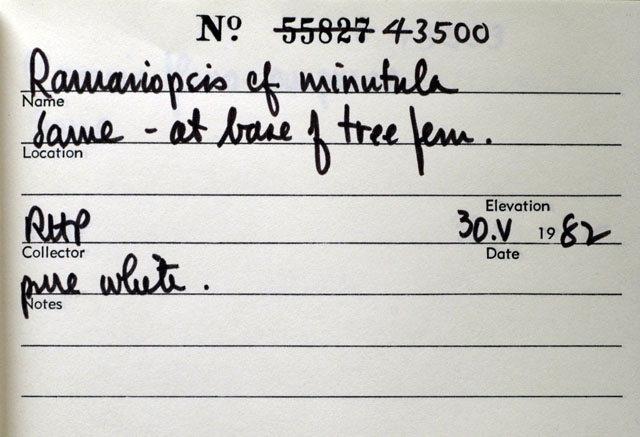 Nº 55827 43500
Ramariopsis cf minutula
Name
Same - at base of tree fern.
Location
Elevation
RHP 30.V 1982
Collector Date
pure white.
Notes